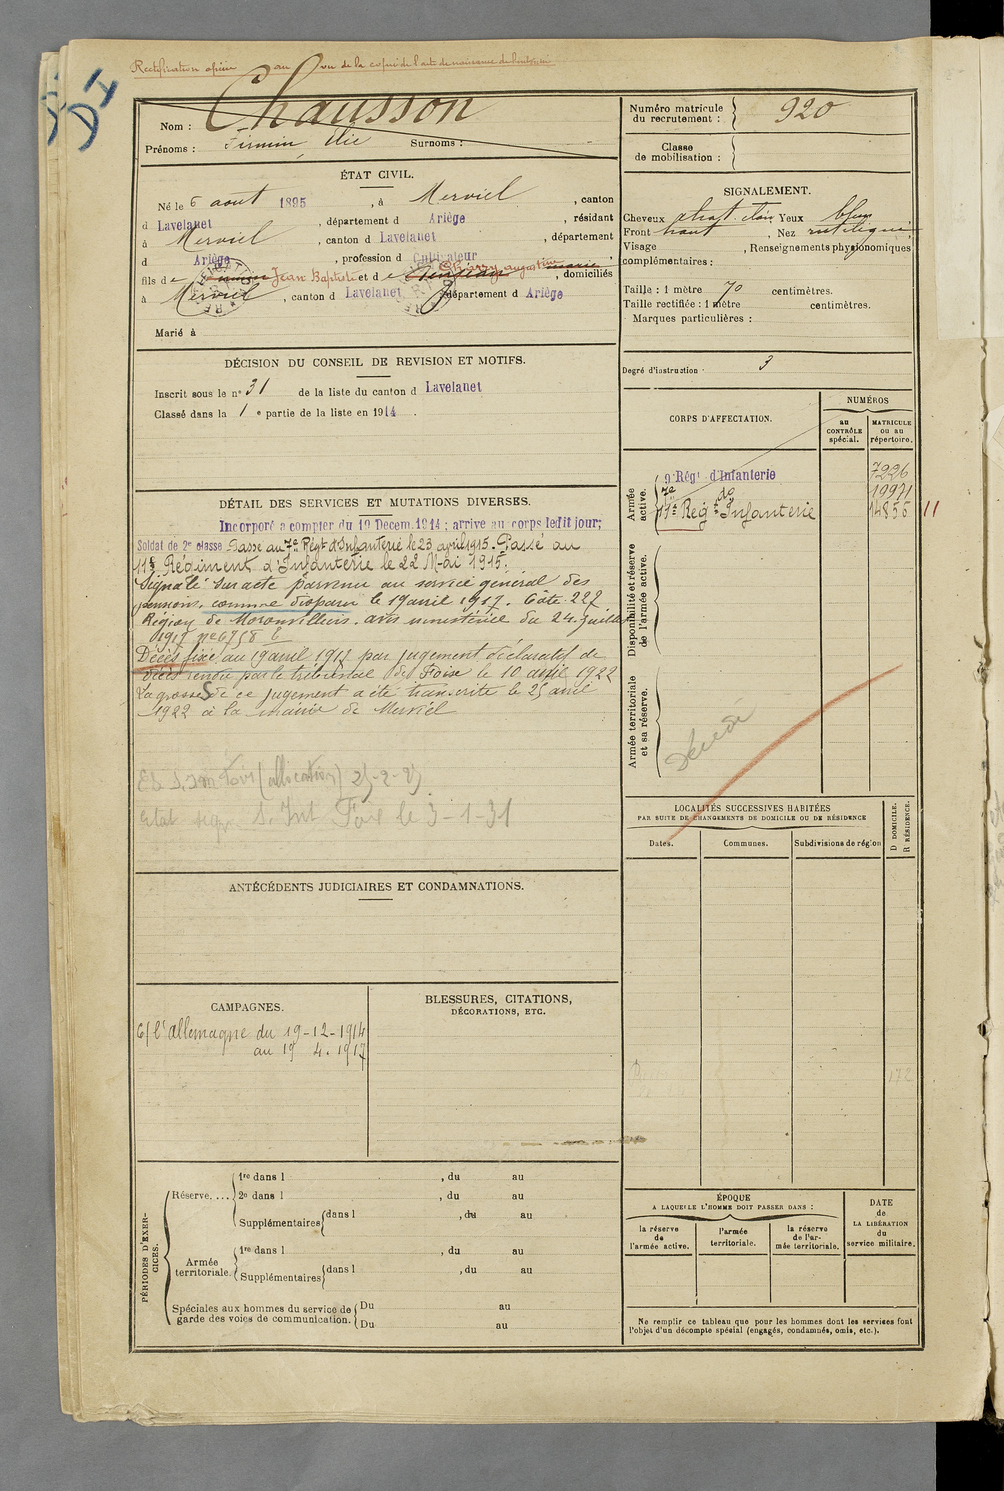 Rectification opérée au vu de la copie de l'acte de naissance de
DI
Nom : Chausson
Prénoms : Firmin, Elie Surnoms :
ÉTAT CIVIL.
Né le 6 aout 1895, à Merviel, canton
d Lavelanet, département d Ariège, résidant
à Merviel, canton d Lavelanet, département
d Ariège, profession d Cultivateur
fils de Firmin Jean Baptiste et de augustine marie, domiciliés
à Merviel, canton d Lavelanet, département d Ariège
Marié à
DÉCISION DU CONSEIL DE REVISION ET MOTIFS.
Inscrit sous le n° 31 de la liste du canton d Lavelanet
Classé dans la 1e partie de la liste en 1914.
DÉTAIL DES SERVICES ET MUTATIONS DIVERSES.
Incorporé a compter du 19 Decem. 1914 ; arrive au corps ledit jour;
Soldat de 2e classe Passé au 7e Régt d'Infanterie le 23 avril 1915. Passé au
11e Régiment d'Infanterie le 22 Mai 1915.
Signalé sur acte parvenu au service général des
pensions, comme disparu le 19 avril 1917. Côte 227
Région de Moronvilliers. avis ministériel du 24 juillet
1917 n° 6758
Décès fixé au 19 avril 1917 par jugement déclaratif de
décès rendu par le tribunal de Foix le 10 avril 1922
La grosse de ce jugement a été transcrite le 25 avril
1922 à la mairie de Merviel
(allocation)
Foix le 3-1-31
ANTÉCÉDENTS JUDICIAIRES ET CONDAMNATIONS.
CAMPAGNES.
C/ l'Allemagne du 19-12-1914
au 19 4. 1917
BLESSURES, CITATIONS,
DÉCORATIONS, ETC.
PÉRIODES D'EXERCICES.
Réserve....
1re dans l , du au
2e dans l , du au
Supplémentaires dans l , du au
Armée territoriale.
1re dans l , du au
Supplémentaires dans l , du au
Spéciales aux hommes du service de garde des voies de communication.
Du au
Du au
Numéro matricule
du recrutement : 920
Classe
de mobilisation :
SIGNALEMENT.
Cheveux chat. clair Yeux bleu
Front haut, Nez rectiligne
Visage , Renseignements physionomiques
complémentaires :
Taille : 1 mètre 70 centimètres.
Taille rectifiée : 1 mètre centimètres.
Marques particulières :
Degré d'instruction : 3
CORPS D'AFFECTATION.
NUMÉROS
au
CONTRÔLE
spécial.
MATRICULE
ou au
répertoire.
Armée
active.
9 Régt d'Infanterie 7226
7e do 19971
11e Régt d'Infanterie 14856 11
Disponibilité et réserve
de l'armée active.
Armée territoriale
et sa réserve.
Décédé
LOCALITÉS SUCCESSIVES HABITÉES
PAR SUITE DE CHANGEMENTS DE DOMICILE OU DE RÉSIDENCE
D DOMICILE.
R RÉSIDENCE.
Dates. Communes. Subdivisions de région
172
ÉPOQUE
A LAQUELLE L'HOMME DOIT PASSER DANS :
la réserve
de
l'armée active.
l'armée
territoriale.
la réserve
de l'ar-
mée territoriale.
DATE
de
LA LIBÉRATION
du
service militaire.
Ne remplir ce tableau que pour les hommes dont les services font
l'objet d'un décompte spécial (engagés, condamnés, omis, etc.).